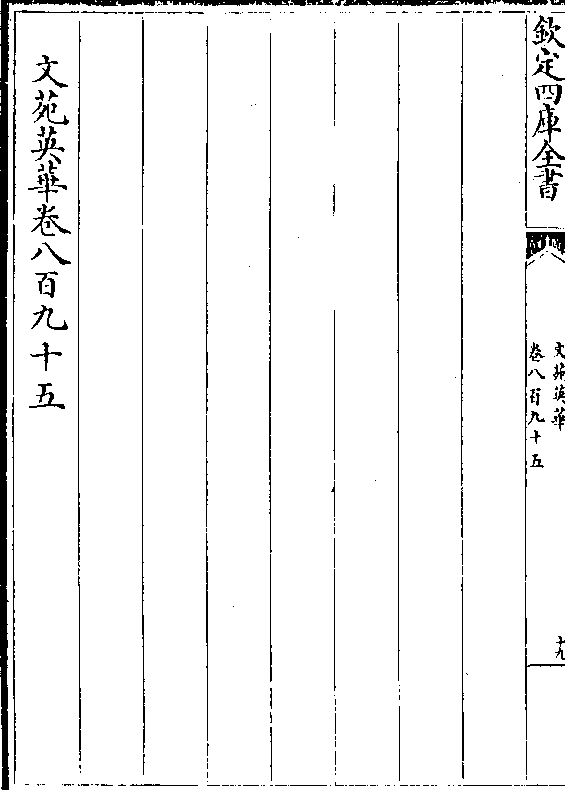 欽定四庫全書
文苑英華
卷八百九十五
十九
文苑英華卷八百九十五